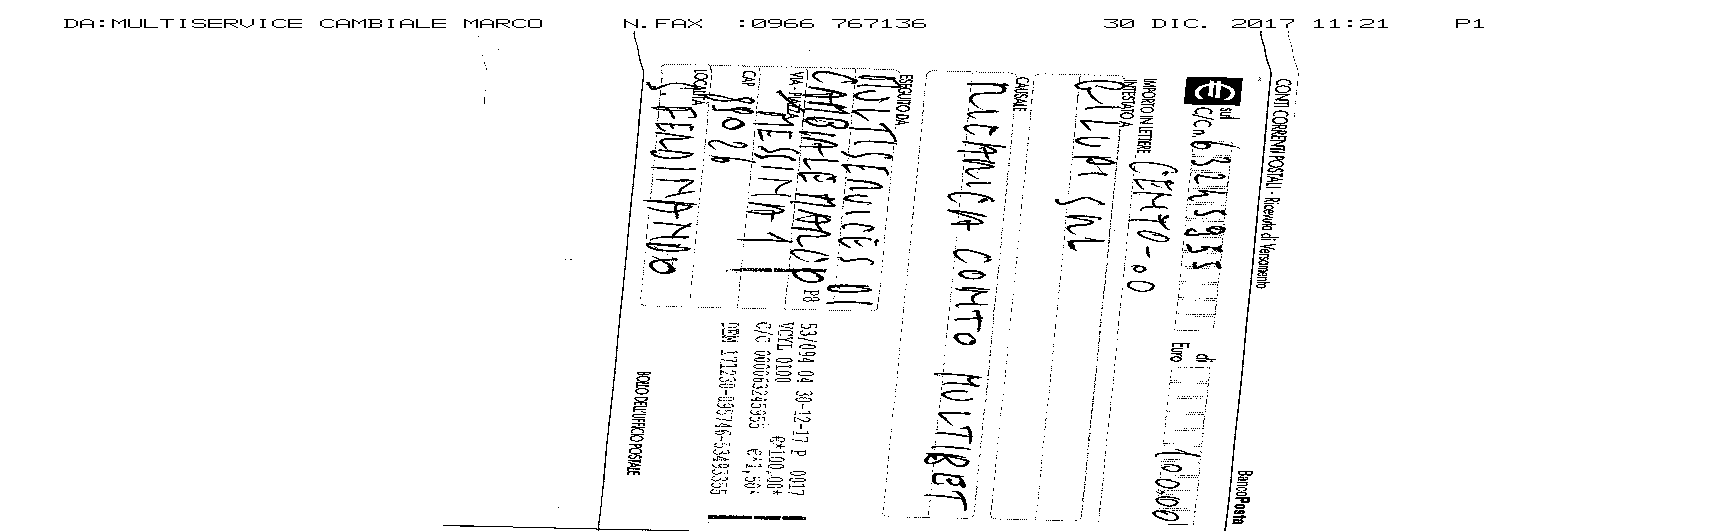 DA:MULTISERVICE CAMBIALE MARCO N.FAX :0966 767136 30 DIC. 2017 11:21 P1
CONTI CORRENTI POSTALI - Ricevuta di Versamento BancoPosta
sul C/C n. 63245955 di Euro 100,00
IMPORTO IN LETTERE CENTO-00
INTESTATO A
SRL
CAUSALE
RICARICA CONTO MULTIBET
ESEGUITO DA
MULTISERVICES DI
CAMBIALE MARCO
VIA - PIAZZA MESSINA 1
CAP 89026
LOCALITÀ S. FERDINANDO
P8
53/094 04 30-12-17 P 0017
VCYL 0100 €*100,00*
C/C 000063245955 €*1,50*
BOLLO DELL'UFFICIO POSTALE